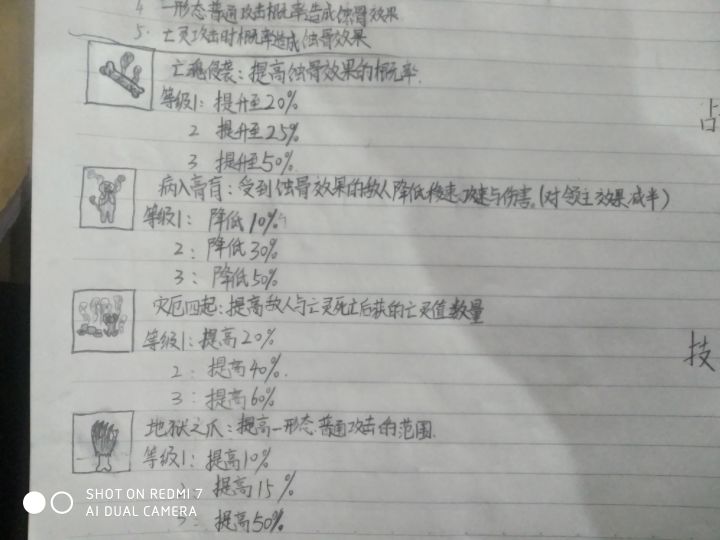 4. 一形态普通攻击概率造成蚀骨效果
5. 亡灵攻击时概率造成蚀骨效果
亡魂侵袭：提高蚀骨效果的概率.
等级1：提升至20%
2 提升至25%
3 提升至50%.
病入膏肓：受到蚀骨效果的敌人降低移速、攻速与伤害。(对领主效果减半)
等级1：降低10%
2：降低30%
3：降低50%
灾厄四起：提高敌人与亡灵死亡后获的亡灵值数量
等级1：提高20%
2：提高40%.
3：提高60%
地狱之爪：提高一形态普通攻击的范围.
等级1：提高10%
提高15%
3：提高50%
技
SHOT ON REDMI 7
AI DUAL CAMERA